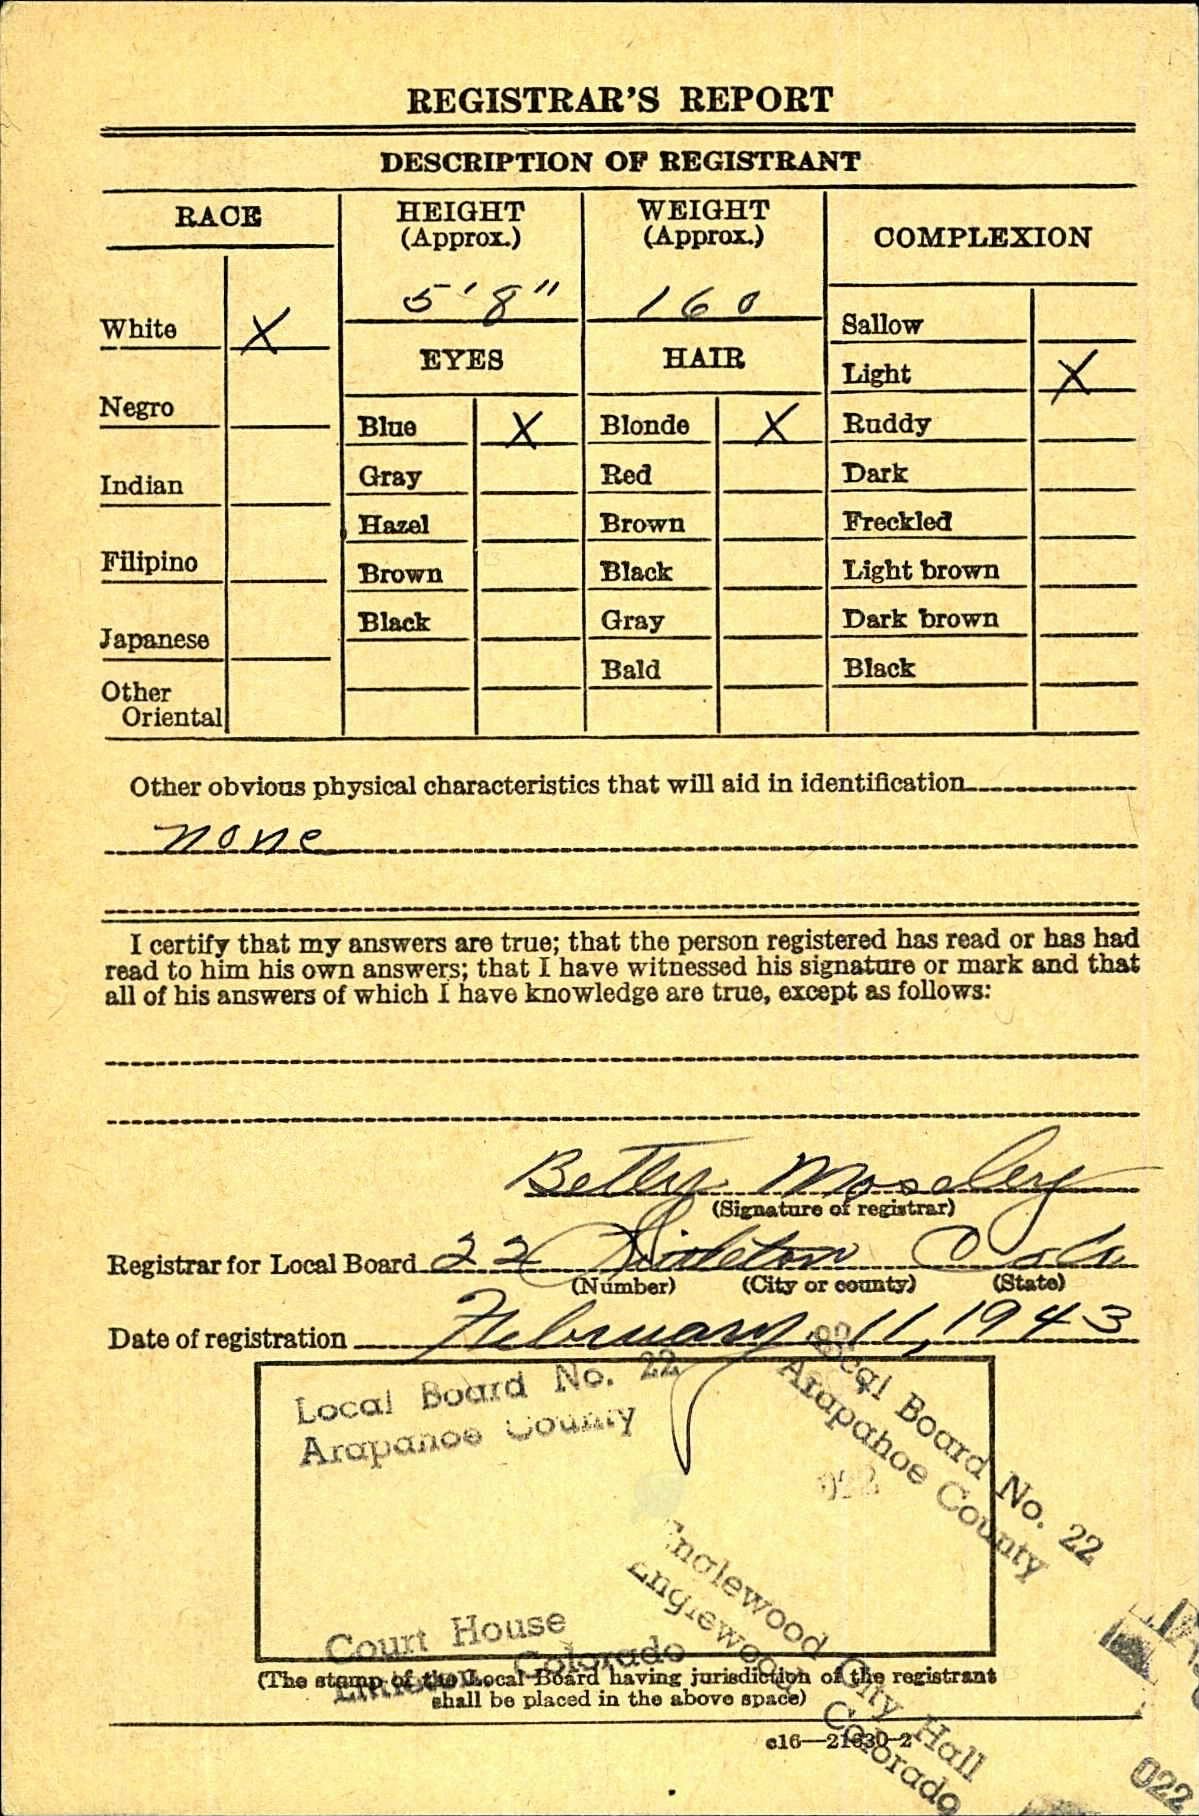 REGISTRAR'S REPORT
DESCRIPTION OF REGISTRANT
RACE
HEIGHT
(Approx.)
WEIGHT
(Approx.)
COMPLEXION
5'8"
160
White X
EYES
HAIR
Sallow
Light X
Negro
Blue X
Blonde X
Ruddy
Indian
Gray
Red
Dark
Hazel
Brown
Freckled
Filipino
Brown
Black
Light brown
Japanese
Black
Gray
Dark brown
Other
Oriental
Bald
Black
Other obvious physical characteristics that will aid in identification
none
I certify that my answers are true; that the person registered has read or has had
read to him his own answers; that I have witnessed his signature or mark and that
all of his answers of which I have knowledge are true, except as follows:
Betty Moseley
(Signature of registrar)
Registrar for Local Board 22 Littleton Colo.
(Number) (City or county) (State)
Date of registration February 11, 1943
Local Board No. 22
Arapahoe County
Court House
Littleton, Colorado
Local Board No. 22
Arapahoe County
022
Englewood City Hall
Englewood Colorado
(The stamp of the Local Board having jurisdiction of the registrant
shall be placed in the above space)
c16—21630-2
022